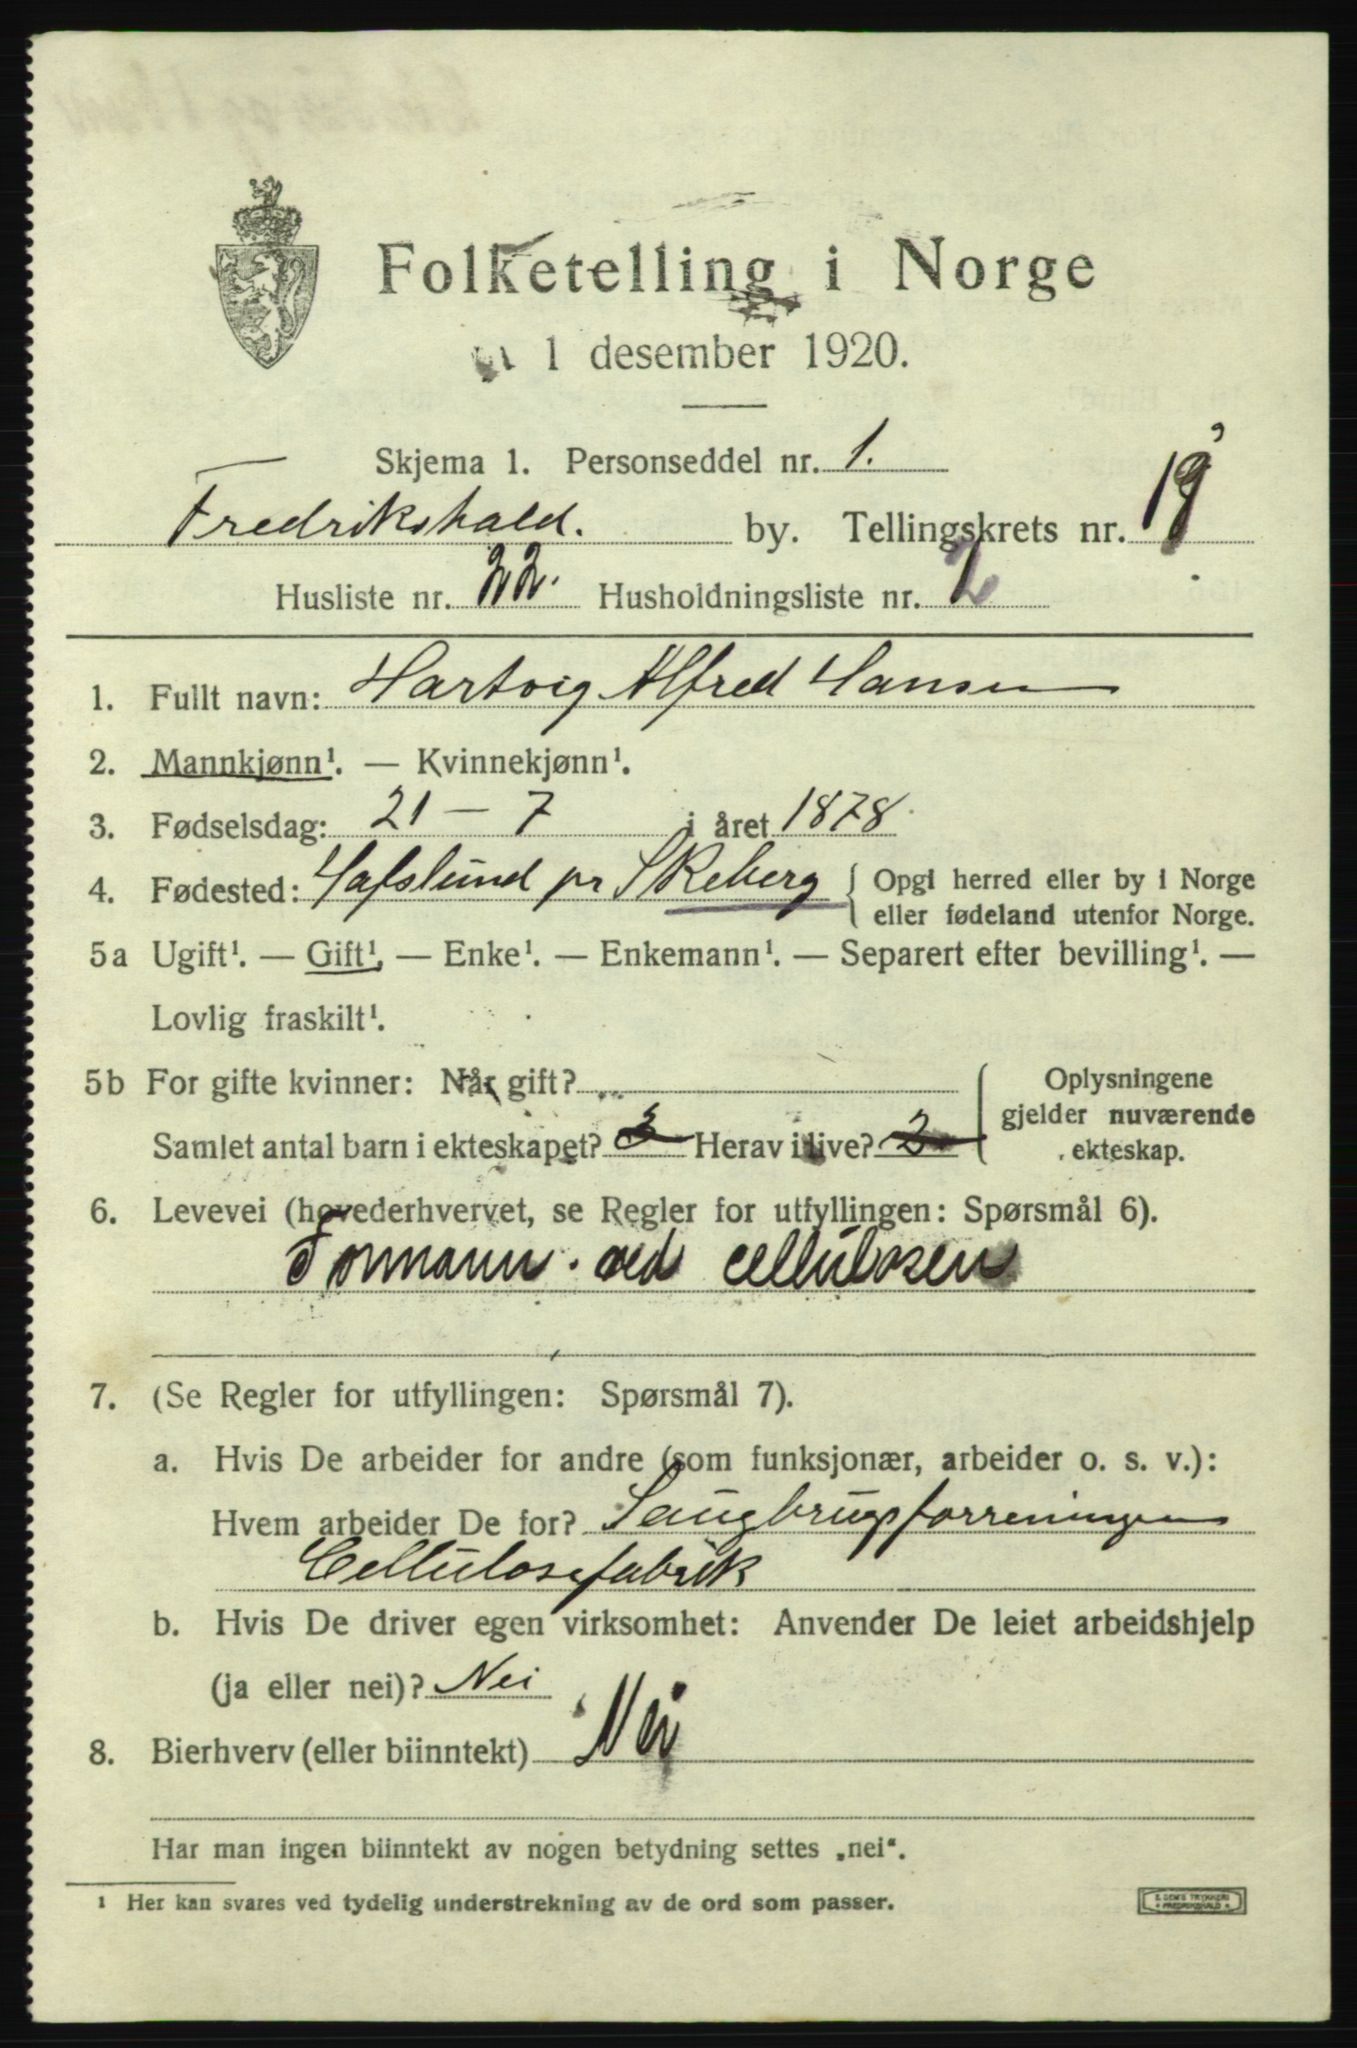 Folketelling i Norge
1 desember 1920.
Skjema 1. Personseddel nr. 1.
Fredrikshald. by. Tellingskrets nr. 19
Husliste nr. 22. Husholdningsliste nr. 2
1. Fullt navn: Hartvig Alfred Hansen
2. Mannkjønn¹. — Kvinnekjønn¹.
3. Fødselsdag: 21 — 7 i året 1878.
4. Fødested: Hafslund pr Skeberg { Opgi herred eller by i Norge
eller fødeland utenfor Norge.
5a Ugift¹. — Gift¹, — Enke¹. — Enkemann¹. — Separert efter bevilling¹. —
Lovlig fraskilt¹.
5b For gifte kvinner: Når gift? { Oplysningene
gjelder nuværende
Samlet antal barn i ekteskapet? 3 Herav i live? 2 ekteskap.
6. Levevei (hovederhvervet, se Regler for utfyllingen: Spørsmål 6).
Formann. ved cellulosen
7. (Se Regler for utfyllingen: Spørsmål 7).
a. Hvis De arbeider for andre (som funksjonær, arbeider o. s. v.):
Hvem arbeider De for? Saugbrugsforreningen
Cellulosefabrik
b. Hvis De driver egen virksomhet: Anvender De leiet arbeidshjelp
(ja eller nei)? Nei
8. Bierhverv (eller biinntekt) Nei
Har man ingen biinntekt av nogen betydning settes „nei“.
¹ Her kan svares ved tydelig understrekning av de ord som passer.
E. SEM'S TRYKKERI
FREDRIKSHALD